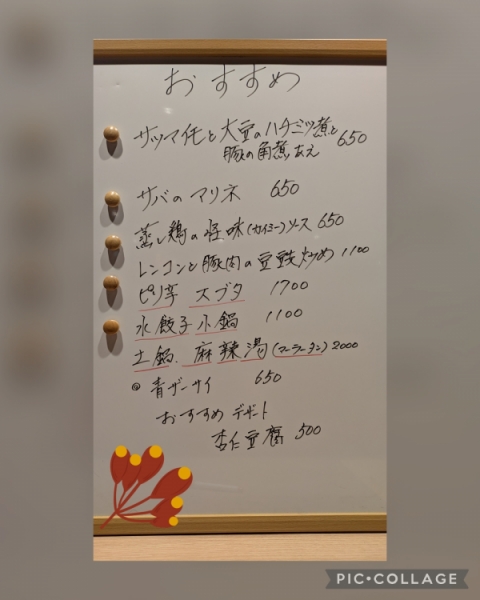 おすすめ
サツマイモと大豆のハチミツ煮と
豚の角煮あえ 650
サバのマリネ 650
蒸し鶏の怪味(カイミー)ソース 650
レンコンと豚肉の豆豉炒め 1100
ピリ辛 スブタ 1700
水餃子小鍋 1100
土鍋.麻辣湯(マーラータン) 2000
青ザーサイ 650
おすすめデザート
杏仁豆腐 500
PIC•COLLAGE